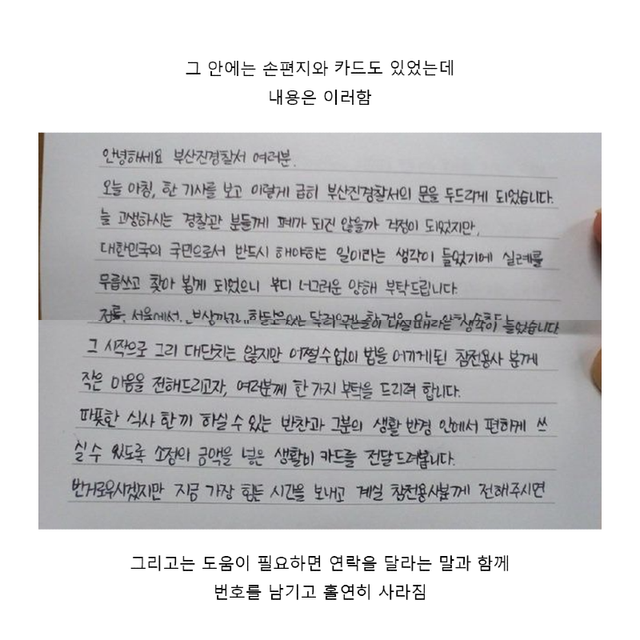 그 안에는 손편지와 카드도 있었는데
내용은 이러함
안녕하세요 부산진경찰서 여러분.
오늘 아침, 한 기사를 보고 이렇게 급히 부산진경찰서의 문을 두드리게 되었습니다.
늘 고생하시는 경찰관 분들께 폐가 되진 않을까 걱정이 되었지만,
대한민국의 국민으로서 반드시 해야하는 일이라는 생각이 들었기에 실례를
무릅쓰고 찾아 뵙게 되었으니 부디 너그러운 양해 부탁드립니다.
서울에서 들었습니다
그 시작으로 그리 대단치는 않지만 어쩔수없이 법을 어기게된 참전용사 분께
작은 마음을 전해드리고자, 여러분께 한 가지 부탁을 드리려 합니다.
따뜻한 식사 한끼 하실 수 있는 반찬과 그분의 생활 반경 안에서 편하게 쓰
실 수 있도록 소정의 금액을 넣은 생활비 카드를 전달드려봅니다.
번거로우시겠지만 지금 가장 힘든 시간을 보내고 계실 참전용사분께 전해주시면
그리고는 도움이 필요하면 연락을 달라는 말과 함께
번호를 남기고 홀연히 사라짐